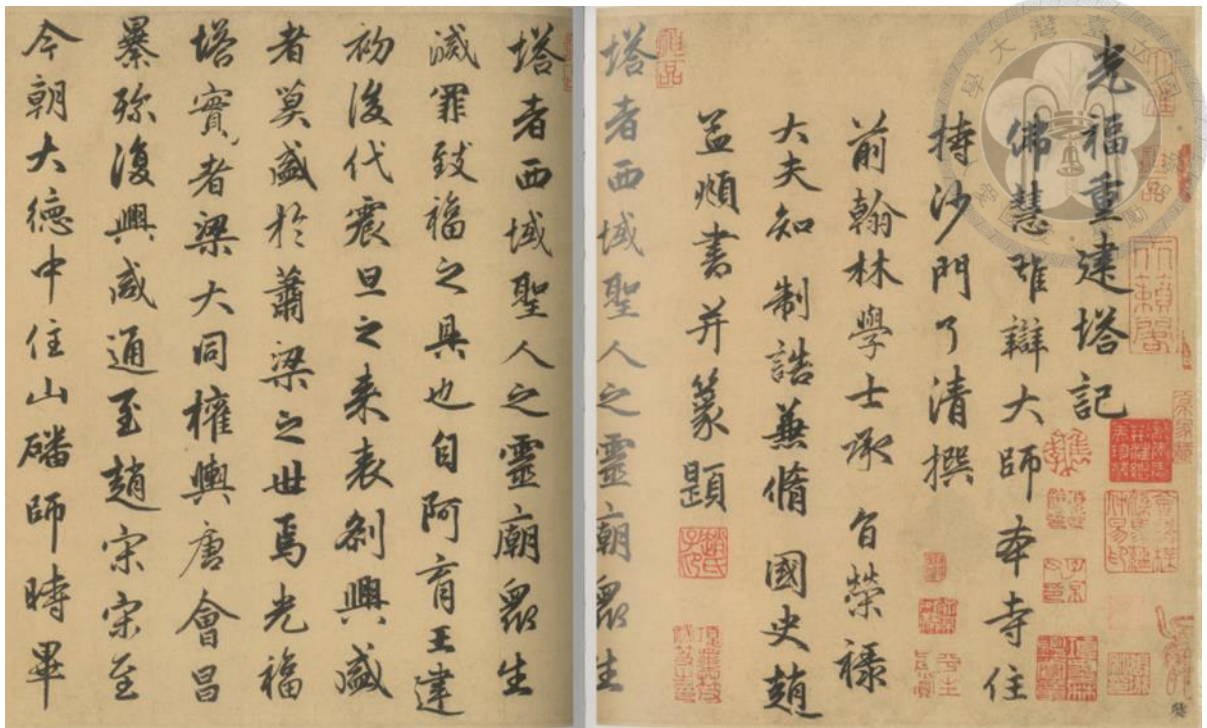 光福重建塔記
佛慧雄辯大師本寺住
持沙門了清撰
前翰林學士承旨榮祿
大夫知制誥兼脩國史趙
孟頫書并篆題
塔者西域聖人之靈廟眾生
塔者西域聖人之靈廟眾生
滅罪致福之具也自阿育王建
初後代震旦之来表剎興盛
者莫盛於蕭梁之世焉光福
塔實者梁大同權輿唐會昌
暴殄復興咸通至趙宋宋至
今朝大德中住山磻師時畢
天籟閣
趙氏子昂